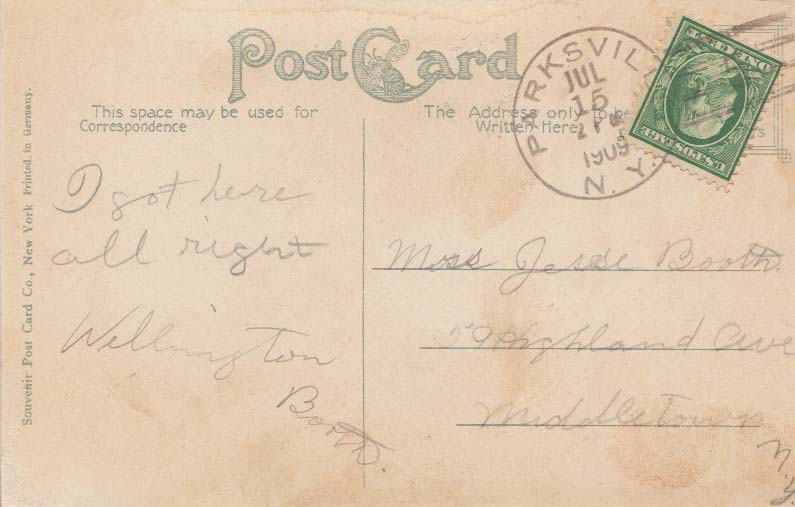 Post Card
This space may be used for
Correspondence
The Address only to be
Written Here
PARKSVILL
JUL
15
2 PM
1909
N. Y.
ONE CENT
U.S. POSTAGE
I got here
all right
Wellington
Booth.
Miss Jesse Booth.
59 Highland Ave
Middletown
N.Y.
Souvenir Post Card Co., New York Printed in Germany.